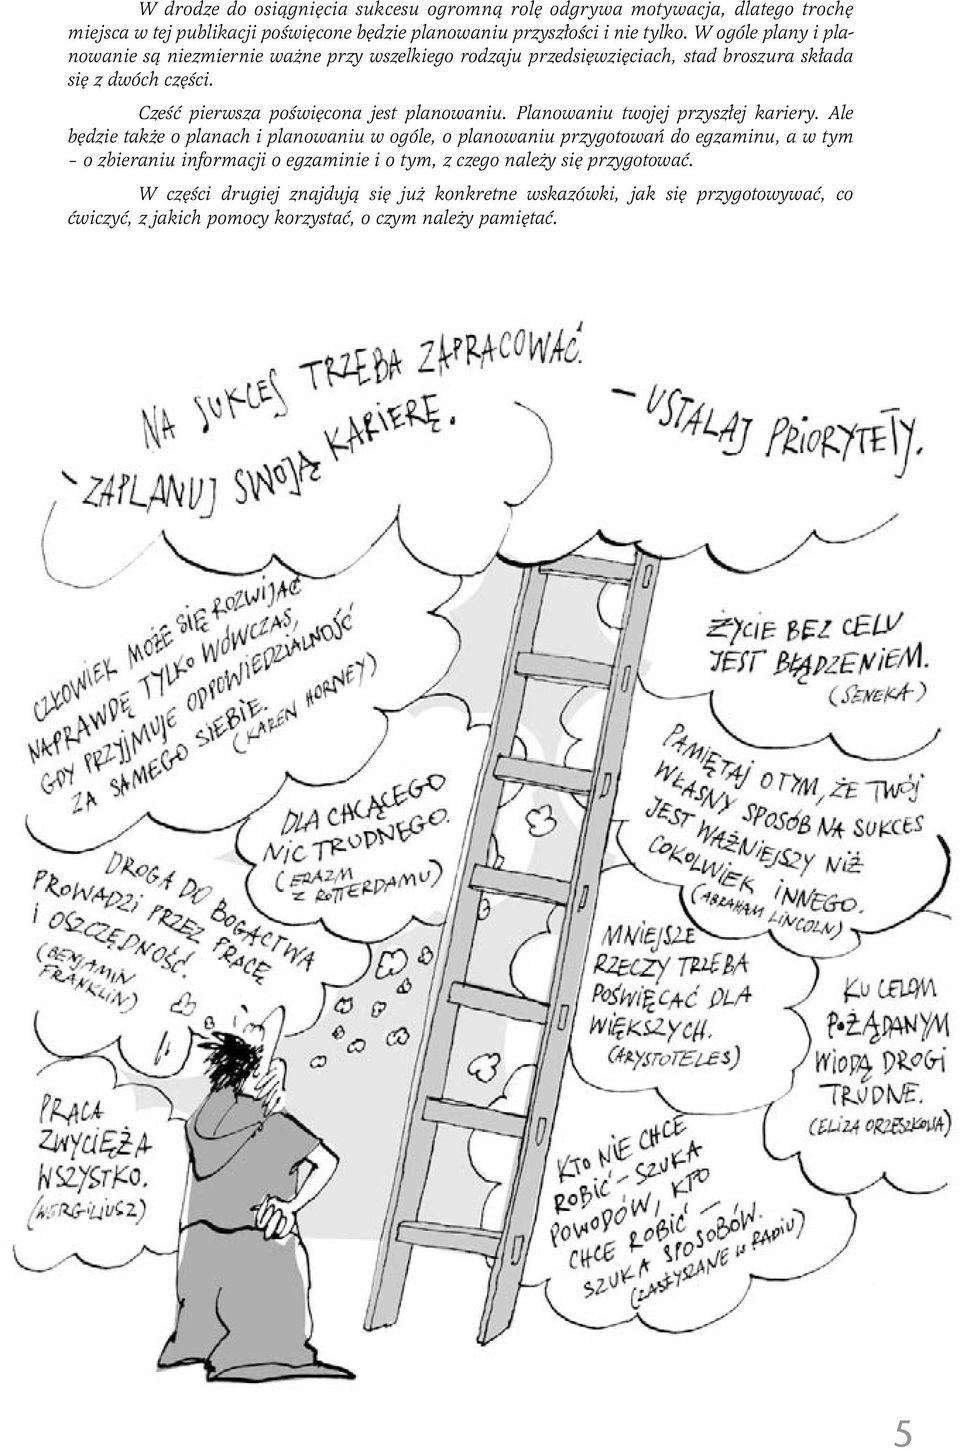 W drodze do osiągnięcia sukcesu ogromną rolę odgrywa motywacja, dlatego trochę
miejsca w tej publikacji poświęcone będzie planowaniu przyszłości i nie tylko. W ogóle plany i pla-
nowanie są niezmiernie ważne przy wszelkiego rodzaju przedsięwzięciach, stad broszura składa
się z dwóch części.
Cześć pierwsza poświęcona jest planowaniu. Planowaniu twojej przyszłej kariery. Ale
będzie także o planach i planowaniu w ogóle, o planowaniu przygotowań do egzaminu, a w tym
– o zbieraniu informacji o egzaminie i o tym, z czego należy się przygotować.
W części drugiej znajdują się już konkretne wskazówki, jak się przygotowywać, co
ćwiczyć, z jakich pomocy korzystać, o czym należy pamiętać.
NA SUKCES TRZEBA ZAPRACOWAĆ.
ZAPLANUJ SWOJĄ KARIERĘ.
– USTALAJ PRIORYTETY.
CZŁOWIEK MOŻE SIĘ ROZWIJAĆ
NAPRAWDĘ TYLKO WÓWCZAS,
GDY PRZYJMUJE ODPOWIEDZIALNOŚĆ
ZA SAMEGO SIEBIE.
(KAREN HORNEY)
ŻYCIE BEZ CELU
JEST BŁĄDZENIEM.
(SENEKA)
PAMIĘTAJ O TYM, ŻE TWÓJ
WŁASNY SPOSÓB NA SUKCES
JEST WAŻNIEJSZY NIŻ
COKOLWIEK INNEGO.
(ABRAHAM LINCOLN)
DLA CHCĄCEGO
NIC TRUDNEGO.
(ERAZM
Z ROTTERDAMU)
DROGA DO BOGACTWA
PROWADZI PRZEZ PRACĘ
I OSZCZĘDNOŚĆ.
(BENJAMIN
FRANKLIN)
MNIEJSZE
RZECZY TRZEBA
POŚWIĘCAĆ DLA
WIĘKSZYCH.
(ARYSTOTELES)
KU CELOM
POŻĄDANYM
WIODĄ DROGI
TRUDNE.
(ELIZA ORZESZKOWA)
PRACA
ZWYCIĘŻA
WSZYSTKO.
(WERGILIUSZ)
KTO NIE CHCE
ROBIĆ – SZUKA
POWODÓW, KTO
CHCE ROBIĆ –
SZUKA SPOSOBÓW.
(ZASŁYSZANE W RADIU)
5